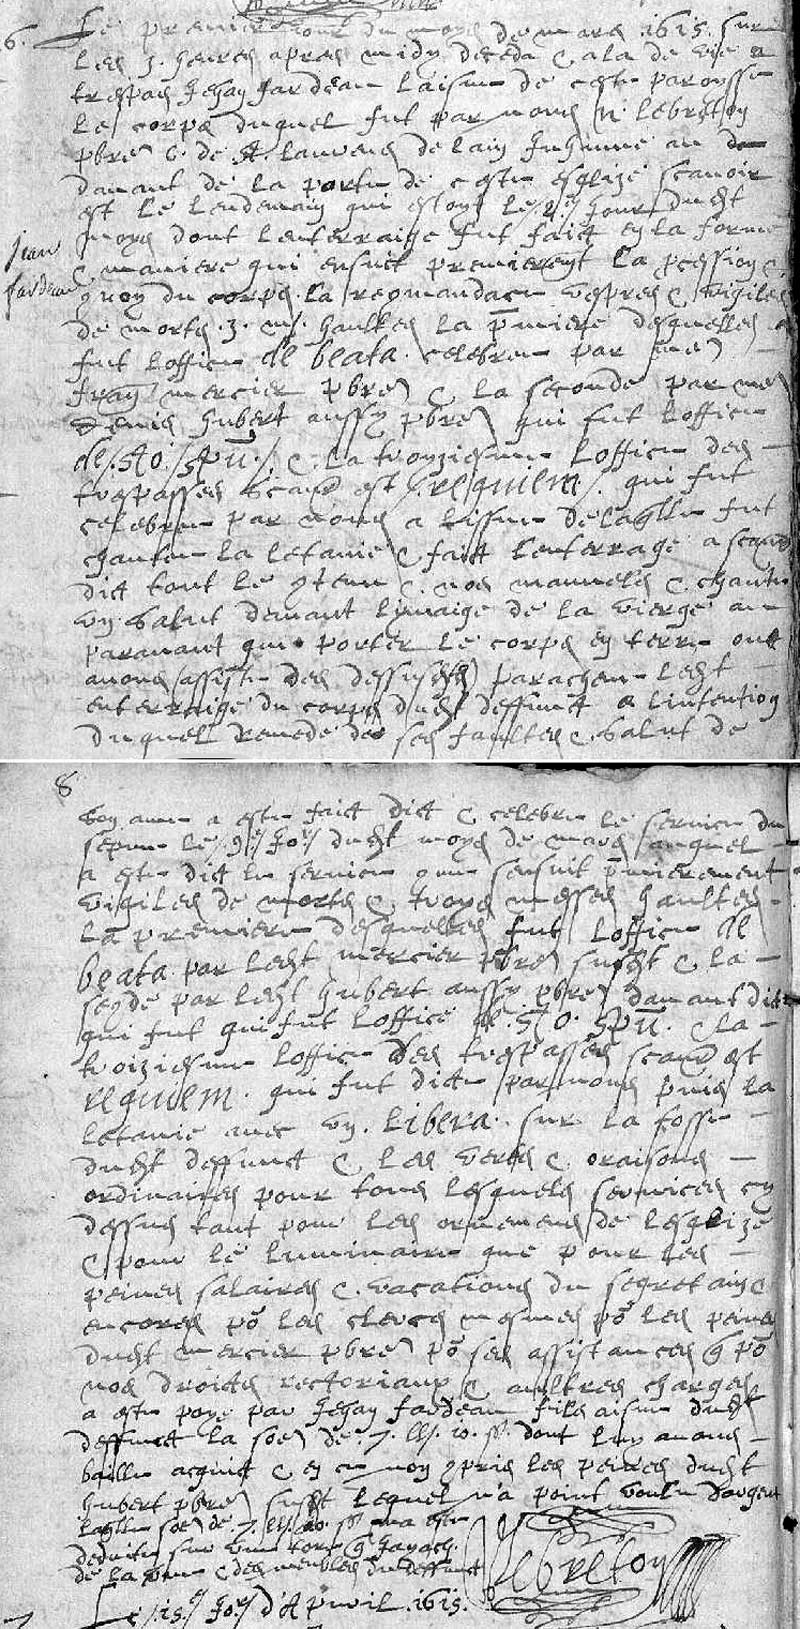 6. Le premier jour du moys de mars .1615. sur
les 3. heures apres midy deceda & ala de vie a
trespas Jehan Fardeau laisné de cette paroysse
le corps duquel fut par nous N. lebreton
pbre C. de St. laurens de lain Inhumé au de
davant de la porte de cette esglize scavoir
est le lendemain qui estoyt le 2e Jour dudt
moys dont lenterraige fut faict en la forme
& maniere qui ensuit premieremt la pcession &
jean
fardeau
du corps la recmandacn vespres & vigiles
de morts .3. m. haultes la pmiere desquelles
fut loffice de beata. celebree par me
fran mercier pbre & la seconde par me
Denis hubert aussy pbre qui fut loffice
de Sto. Spu. & la troyziesme loffice des
trespasses scavr est requiem. qui fut
celebree par nous a lissue de laqlle fut
chantee la letanie & faict lenterrage a scavr
dict tout le contenu & nos manuels & chanté
un salut devant limaige de la vierge au
paravant que porter le corps en terre ou
avons assisté des dessusdts parachevé ledt
enterraige du corps dudt deffunct a lintention
duquel remede de ses faultes & salut de
8
son ame a esté faict dict & celebré le service du
sepme le 9e Jor dudt moys de mars auquel
a esté dict le service que sensuit pmierement
vigiles de morts & troys messes haultes
la premiere desquelles fut loffice de
beata par ledt mercier pbre susdt & la
segde par ledt hubert aussy pbre davant dict
qui fut qui fut loffice de. Sto. Spu. & la
troiziesme loffice des trespasses scavr est
requiem. qui fut dicte par nous puis la
letanie avec un. libera. sur la fosse
dudt deffunct & les vers & oraisons
ordinaires pour tous lesquels services cy
dessus tant pour les ornemens de lesglize
& pour le luminaire que pour les
peines salaires & vacations du segretain &
encores po les clercs mesmes po les peines
dudt mercier pbre po ses assistances q po
nos droicts rectoriaux & aultres charges
a esté poyé par Jehan fardeau fils aisné dudt
deffunct la soe de .7. ll. 10. ss. dont luy avons
baillé acquict & en ce non cpris les peines dudt
hubert pbre susdt lequel n'a point voulu dargent
laqlle soe de .7. ll. 10. ss m'a esté
deduite sur
de la & des meubles du deffunct
lebreton
Le .15.e Jor d'Apvril .1615.